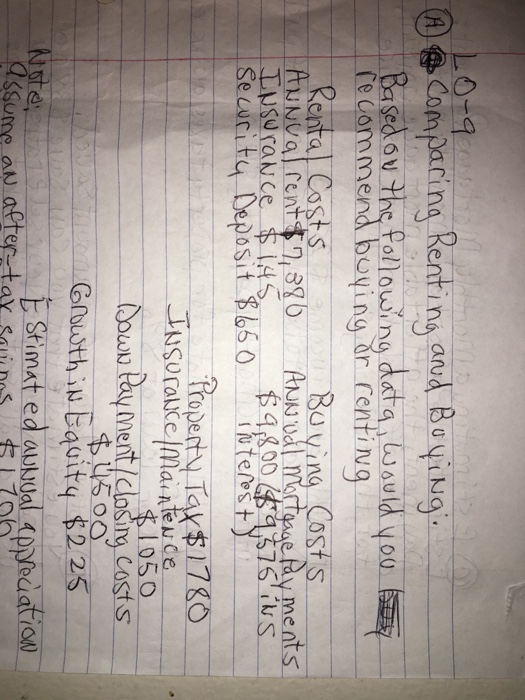 LO-9
(A) Comparing Renting and Buying:
Based on the following data, would you
recommend buying or renting
Rental Costs Buying Costs
Annual rent $7,380 Annual mortgage Payments
Insurance $145 $9,800 ($9,575 ins
Security Deposit $650 interest)
Property Tax $1780
Insurance/Maintence
$1050
Down Payment/closing costs
$4500
Growth in Equity $225
Estimated annual appreciation
Note: $1700
assume an after-tax savings